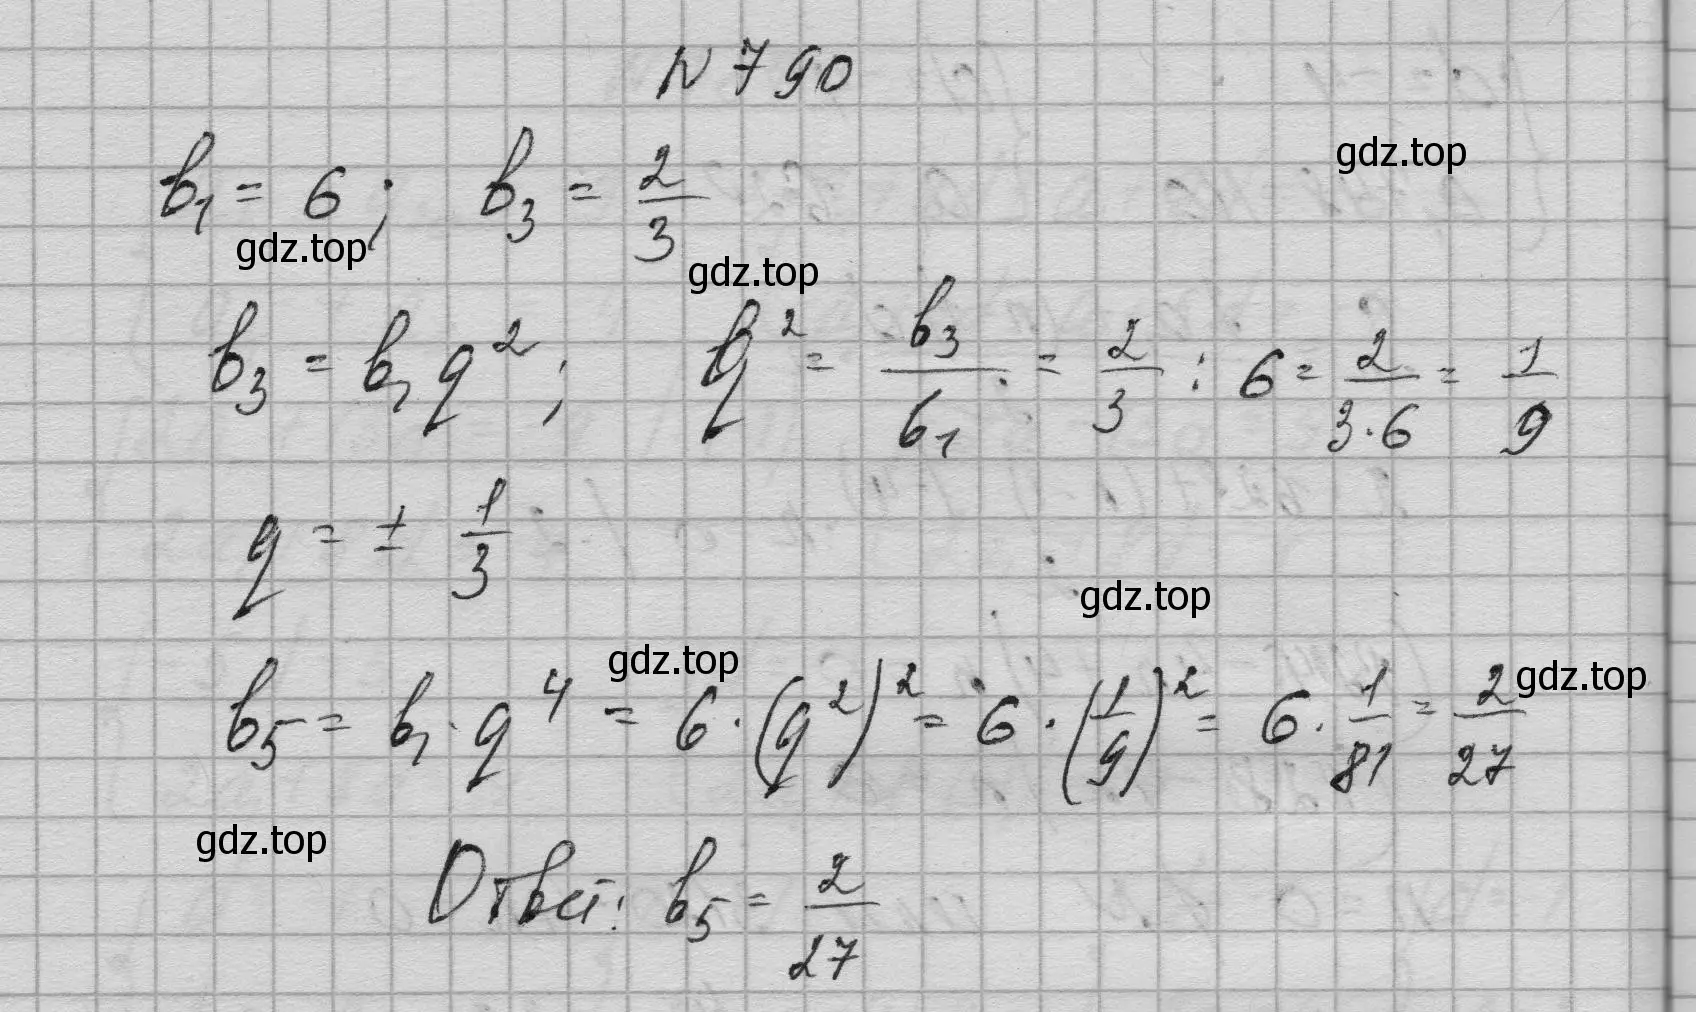 N 790
gdz.top
b₁ = 6; b₃ = 2/3
gdz.top
gdz.top
b₃ = b₁q²; q² = b₃/b₁ = 2/3 : 6 = 2/(3·6) = 1/9
q = ± 1/3
gdz.top
gdz.top
gdz.top
b₅ = b₁·q⁴ = 6·(q²)² = 6·(1/9)² = 6·1/81 = 2/27
gdz.top
Ответ: b₅ = 2/27